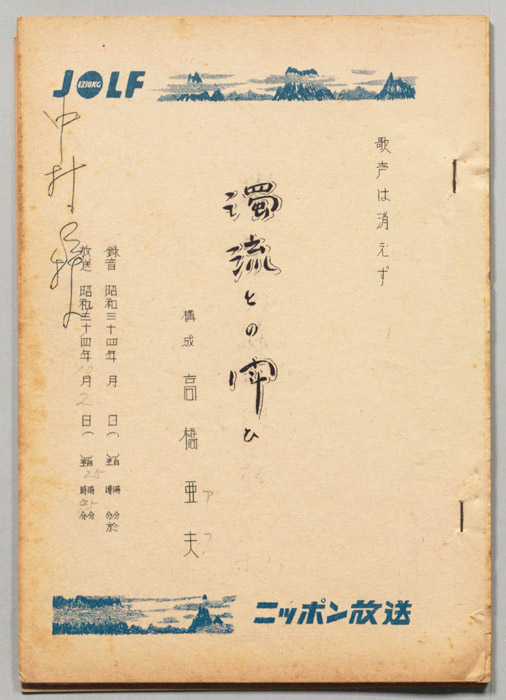 JOLF
1310KC
歌声は消えず
濁流との闘ひ
構成 高橋亜夫
アフ
録音 昭和三十四年 月 日( )自 時 分 至 時 分 於
放送 昭和三十四年 月2日( )自 時 分 至 時 分
中村
ニッポン放送